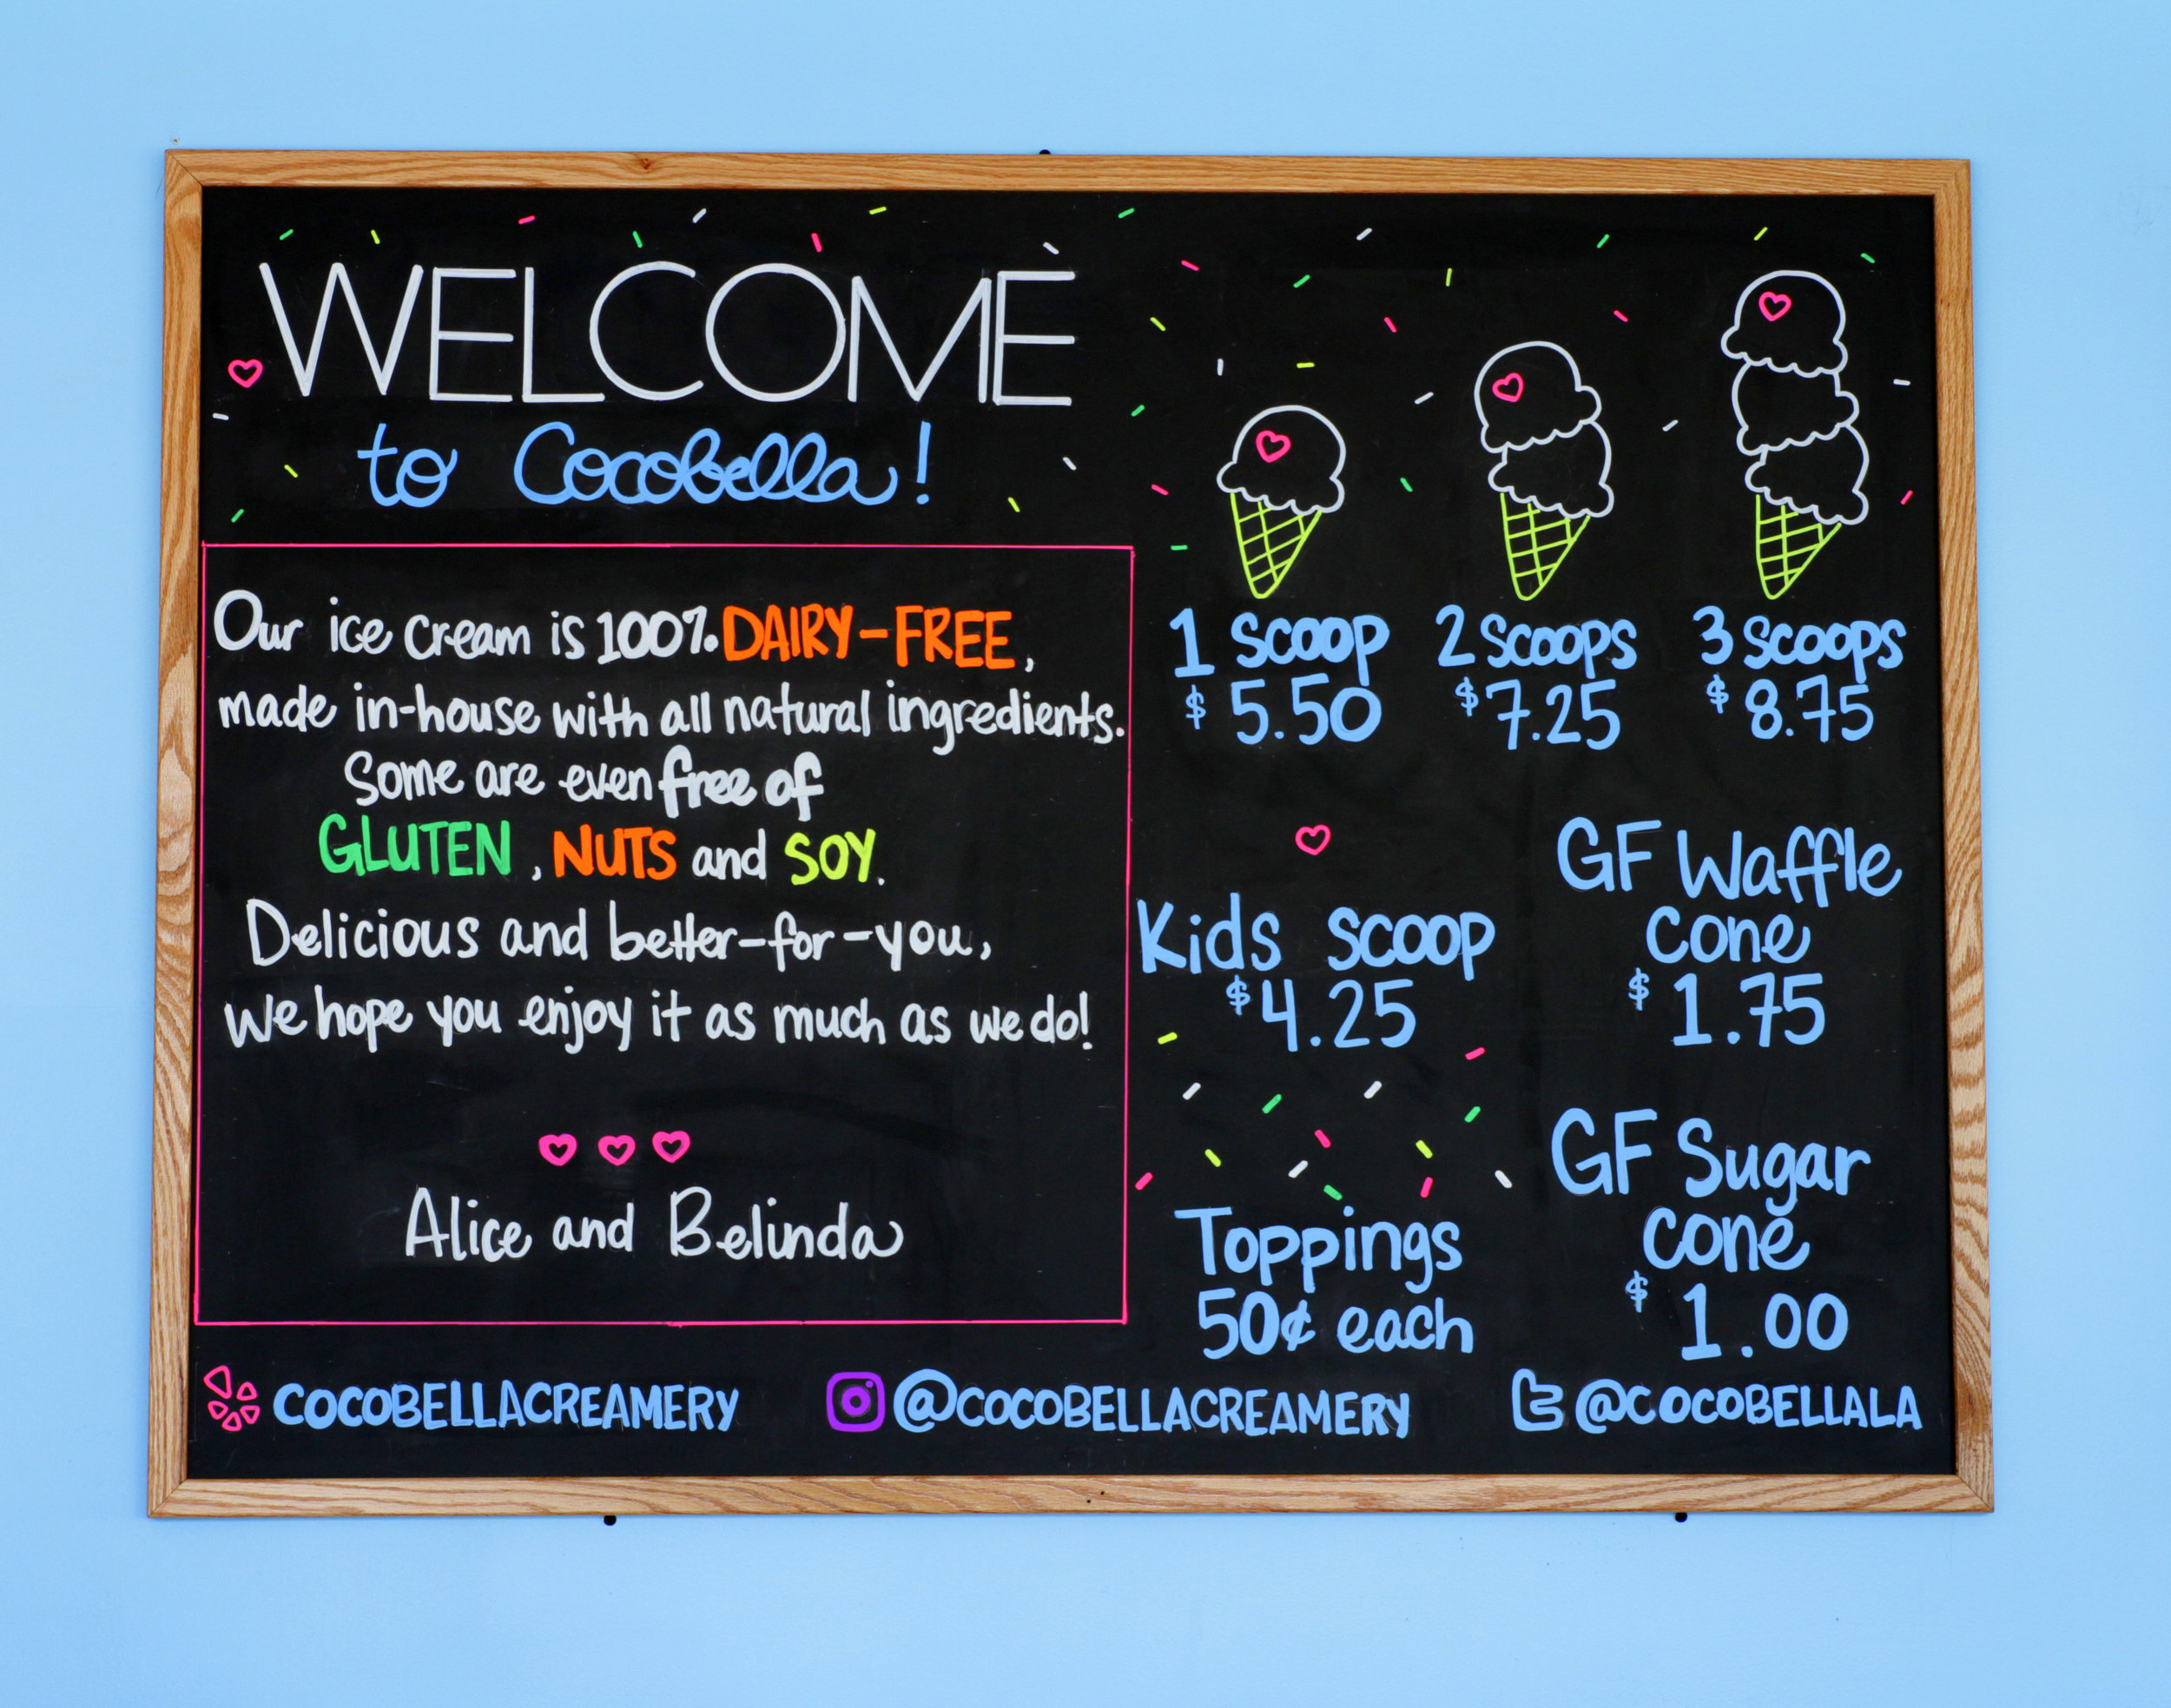 WELCOME
to Cocobella!
Our ice cream is 100% DAIRY-FREE,
made in-house with all natural ingredients.
Some are even free of
GLUTEN, NUTS and SOY.
Delicious and better-for-you,
we hope you enjoy it as much as we do!
Alice and Belinda
1 scoop
$5.50
2 scoops
$7.25
3 scoops
$8.75
Kids scoop
$4.25
GF Waffle
Cone
$1.75
Toppings
50¢ each
GF Sugar
Cone
$1.00
COCOBELLACREAMERY
@COCOBELLACREAMERY
@COCOBELLALA